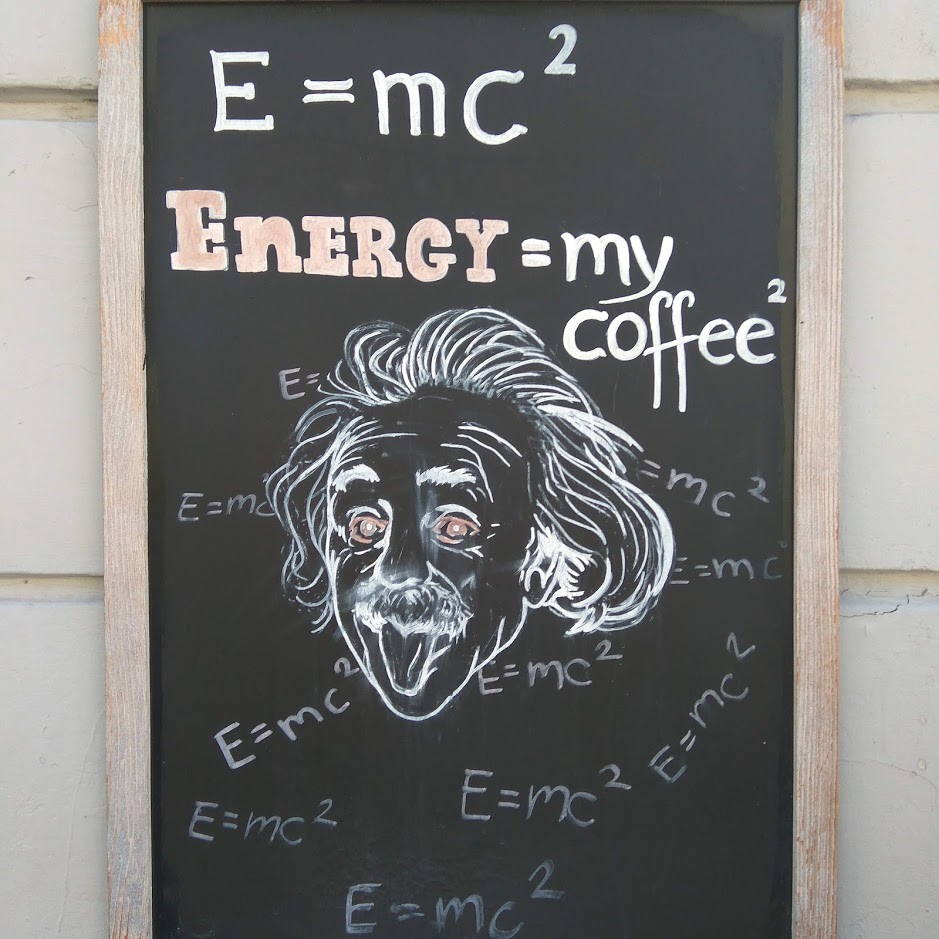 E = mc²
ENERGY = my
coffee²
E=
E=mc²
=mc²
E=mc²
E=mc²
E=mc²
E=mc²
E=mc²
E=mc²
E=mc²